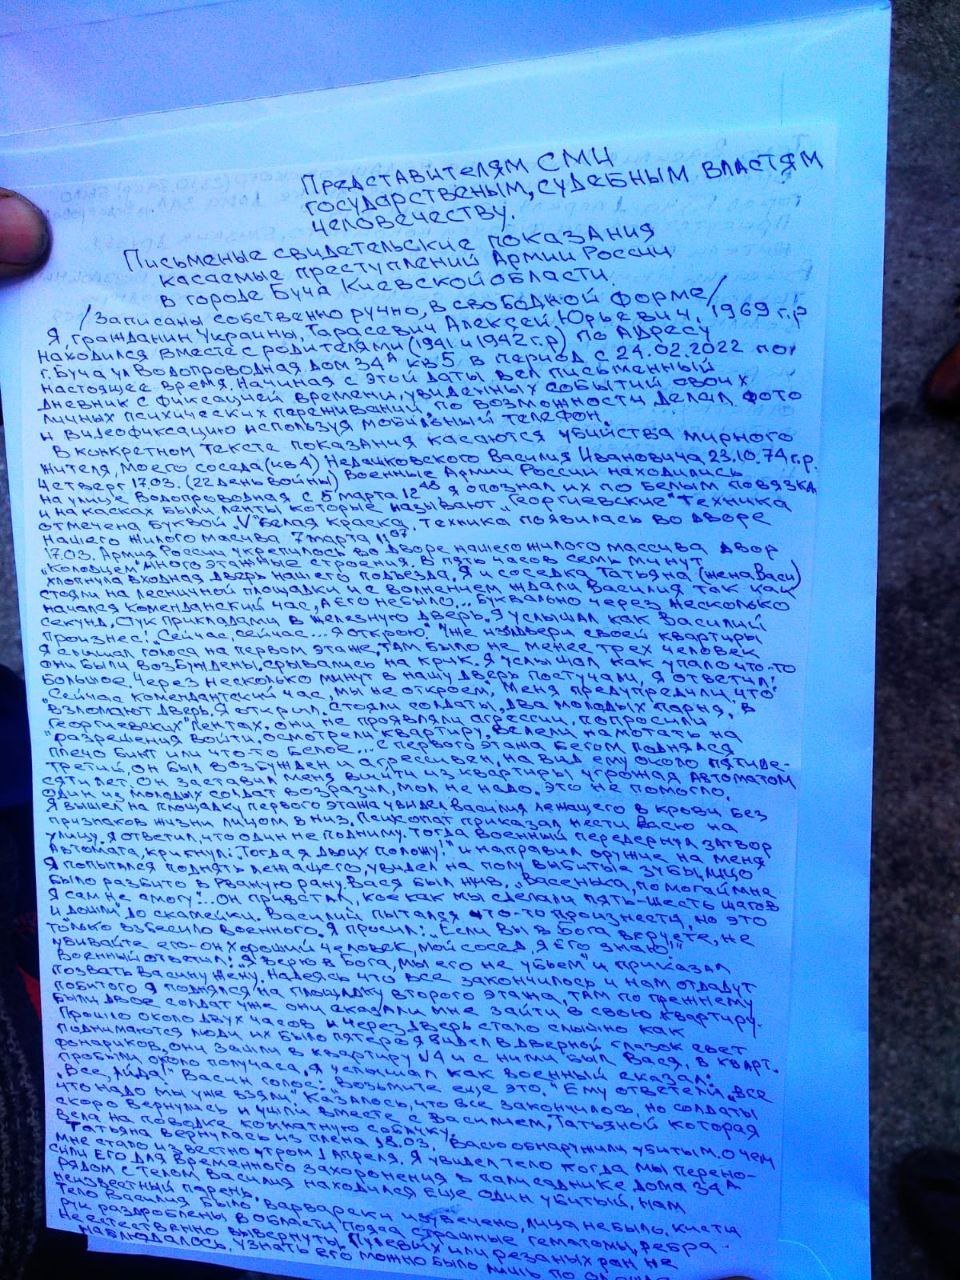 Представителям СМИ
государственым, судебным властям
человечеству.
Письменые свидетельские показания
касаемые преступлений Армии России
в городе Буча Киевской области.
/Записаны собственно ручно, в свободной форме/
Я, гражданин Украины, Тарасевич Алексей Юрьевич, 1969 г.р
находился вместе с родителями (1941 и 1942 г.р) по адресу
г. Буча ул Водопроводная дом 34А кв 5 в период с 24.02.2022 по
настоящее время. Начиная с этой даты вел письменный
дневник с фиксацией времени, увиденных событий своих
личных психических переживаний, по возможности делал фото
и видеофиксацию используя мобильный телефон.
В конкретном тексте показания касаются убийства мирного
жителя, моего соседа (кв 4) Недашковского Василия Ивановича 23.10.74 г.р.
Четверг 17.03. (22 день войны) Военные Армии России находились
на улице Водопроводная с 5 марта 12 48 я опознал их по белым повязка
и на касках были ленты которые называют "Георгиевские" Техника
отмечена буквой "V" белая краска. Техника появилась во дворе
нашего жилого масива 7 марта 11 07
17.03. Армия России укрепилось во дворе нашего жилого массива двор
"колодцем" много этажные строения. В пять часов семь минут
хлопнула входная дверь нашего подъезда. Я и соседка Татьяна (жена Васи)
стояли на лесничной площадки и с волнением ждали Василия так как
начался комендански час, а его не было... Буквально через несколько
секунд, стук прикладами в железную дверь. Я услышал как Василий
произнес: Сейчас, сейчас... я открою." Уже из двери своей квартиры
Я слышал голоса на первом этаже, там было не менее трех человек
они были возбуждены, срывались на крик. Я услышал как упало что-то
большое. Через несколько минут в нашу дверь постучали, я ответил:
"Сейчас комендантский час, мы не откроем, меня предупредили что
взломают дверь. Я открыл. Стояли солдаты, два молодых парня, в
"Георгиевских" лентах, они не проявляли агрессии, попросили
разрешения войти, осмотрели квартиру, велели намотать на
плечо бинт или что-то белое... с первого этажа бегом поднялся
третий, он был возбужден и агрессивен, на вид ему около пятиде-
сяти лет. Он заставил меня выйти из квартиры угрожая автоматом
один из молодых солдат возразил, мол не надо. Это не помогло.
Я вышел на площадку первого этажа увидел Василия лежащего в крови без
признаков жизни лицом в низ. Психопат приказал нести Васю на
улицу. Я ответил, что один не подниму. Тогда военный передернул затвор
автомата, крикнул: Тогда я двоих положу!" и направил оружие на меня
Я попытался поднять лежащего, увидел на полу выбитые зубы, лицо
было разбито в рваную рану. Вася был жив. "Васенька, помогай мне
Я сам не смогу!.. Он привстал, кое как мы сделали пять-шесть шагов
и "дошли" до скамейки. Василий пытался что-то произнести, но это
только взбесило военного. Я просил: "Если вы в Бога веруете, не
убивайте его-он хороший человек, мой сосед, я его знаю!"
Военный ответил: "Я верю в Бога, мы его не убьем" и приказал
позвать Васину жену. Надеясь что все закончилось и нам отдадут
побитого я поднялся на площадку второго этажа, там по прежнему
были двое солдат уже они сказали мне зайти в свою квартиру.
Прошло около двух часов и через дверь стало слышно как
поднимаются люди их было пятеро я видел в дверной глазок свет
фонариков, они зашли в квартиру №4 и с ними был Вася. В кварт.
пробыли около получаса, я услышал как военный сказал:
"Все, айда!" Васин голос: "Возьмите еще это." Ему ответели "все
что надо мы уже взяли." Казалось, что все закончилось, но солдаты
скоро вернулись и ушли вместе с Василием, Татьяной которая
вела на поводке комнатную собачку.
Татьяна вернулась из плена 18.03. Васю обнаружили убитым. О чем
мне стало известно утром 1 апреля. Я увидел тело когда мы перено-
сили его для временного захоронения в палисаднике дома 34А
рядом с телом Василия находился еще один убитый, нам
неизвестный парень.
Тело Василия было варварски изувечено, лица небыло. Кисти
рук раздроблены в области страшные гематомы, ребра
не естественно вывернуты. Пулевых или резаных ран не
наблюдалось. Узнать его можно было лишь по